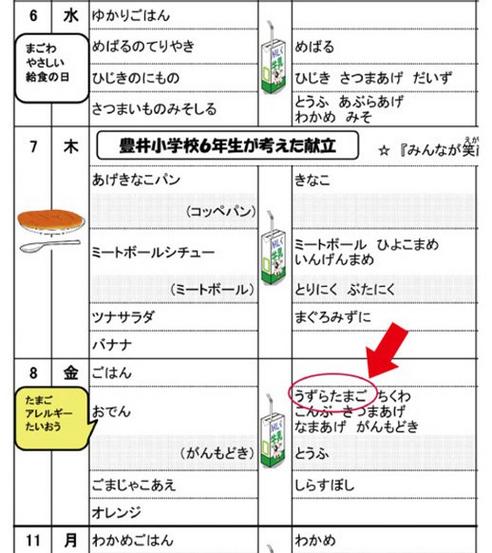 6 水 ゆかりごはん
まごわ
やさしい
給食の日
めばるのてりやき めばる
ひじきのにもの ひじき さつまあげ だいず
さつまいものみそしる とうふ あぶらあげ
わかめ みそ
牛乳
7 木 豊井小学校6年生が考えた献立 ☆『みんなが笑
えが
あげきなこパン きなこ
(コッペパン)
牛乳
ミートボールシチュー ミートボール ひよこまめ
いんげんまめ
(ミートボール) とりにく ぶたにく
ツナサラダ まぐろみずに
バナナ
8 金 ごはん
たまご
アレルギー
たいおう
おでん うずらたまご ちくわ
こんぶ さつまあげ
なまあげ がんもどき
牛乳
(がんもどき) とうふ
ごまじゃこあえ しらすぼし
オレンジ
11 月 わかめごはん わかめ